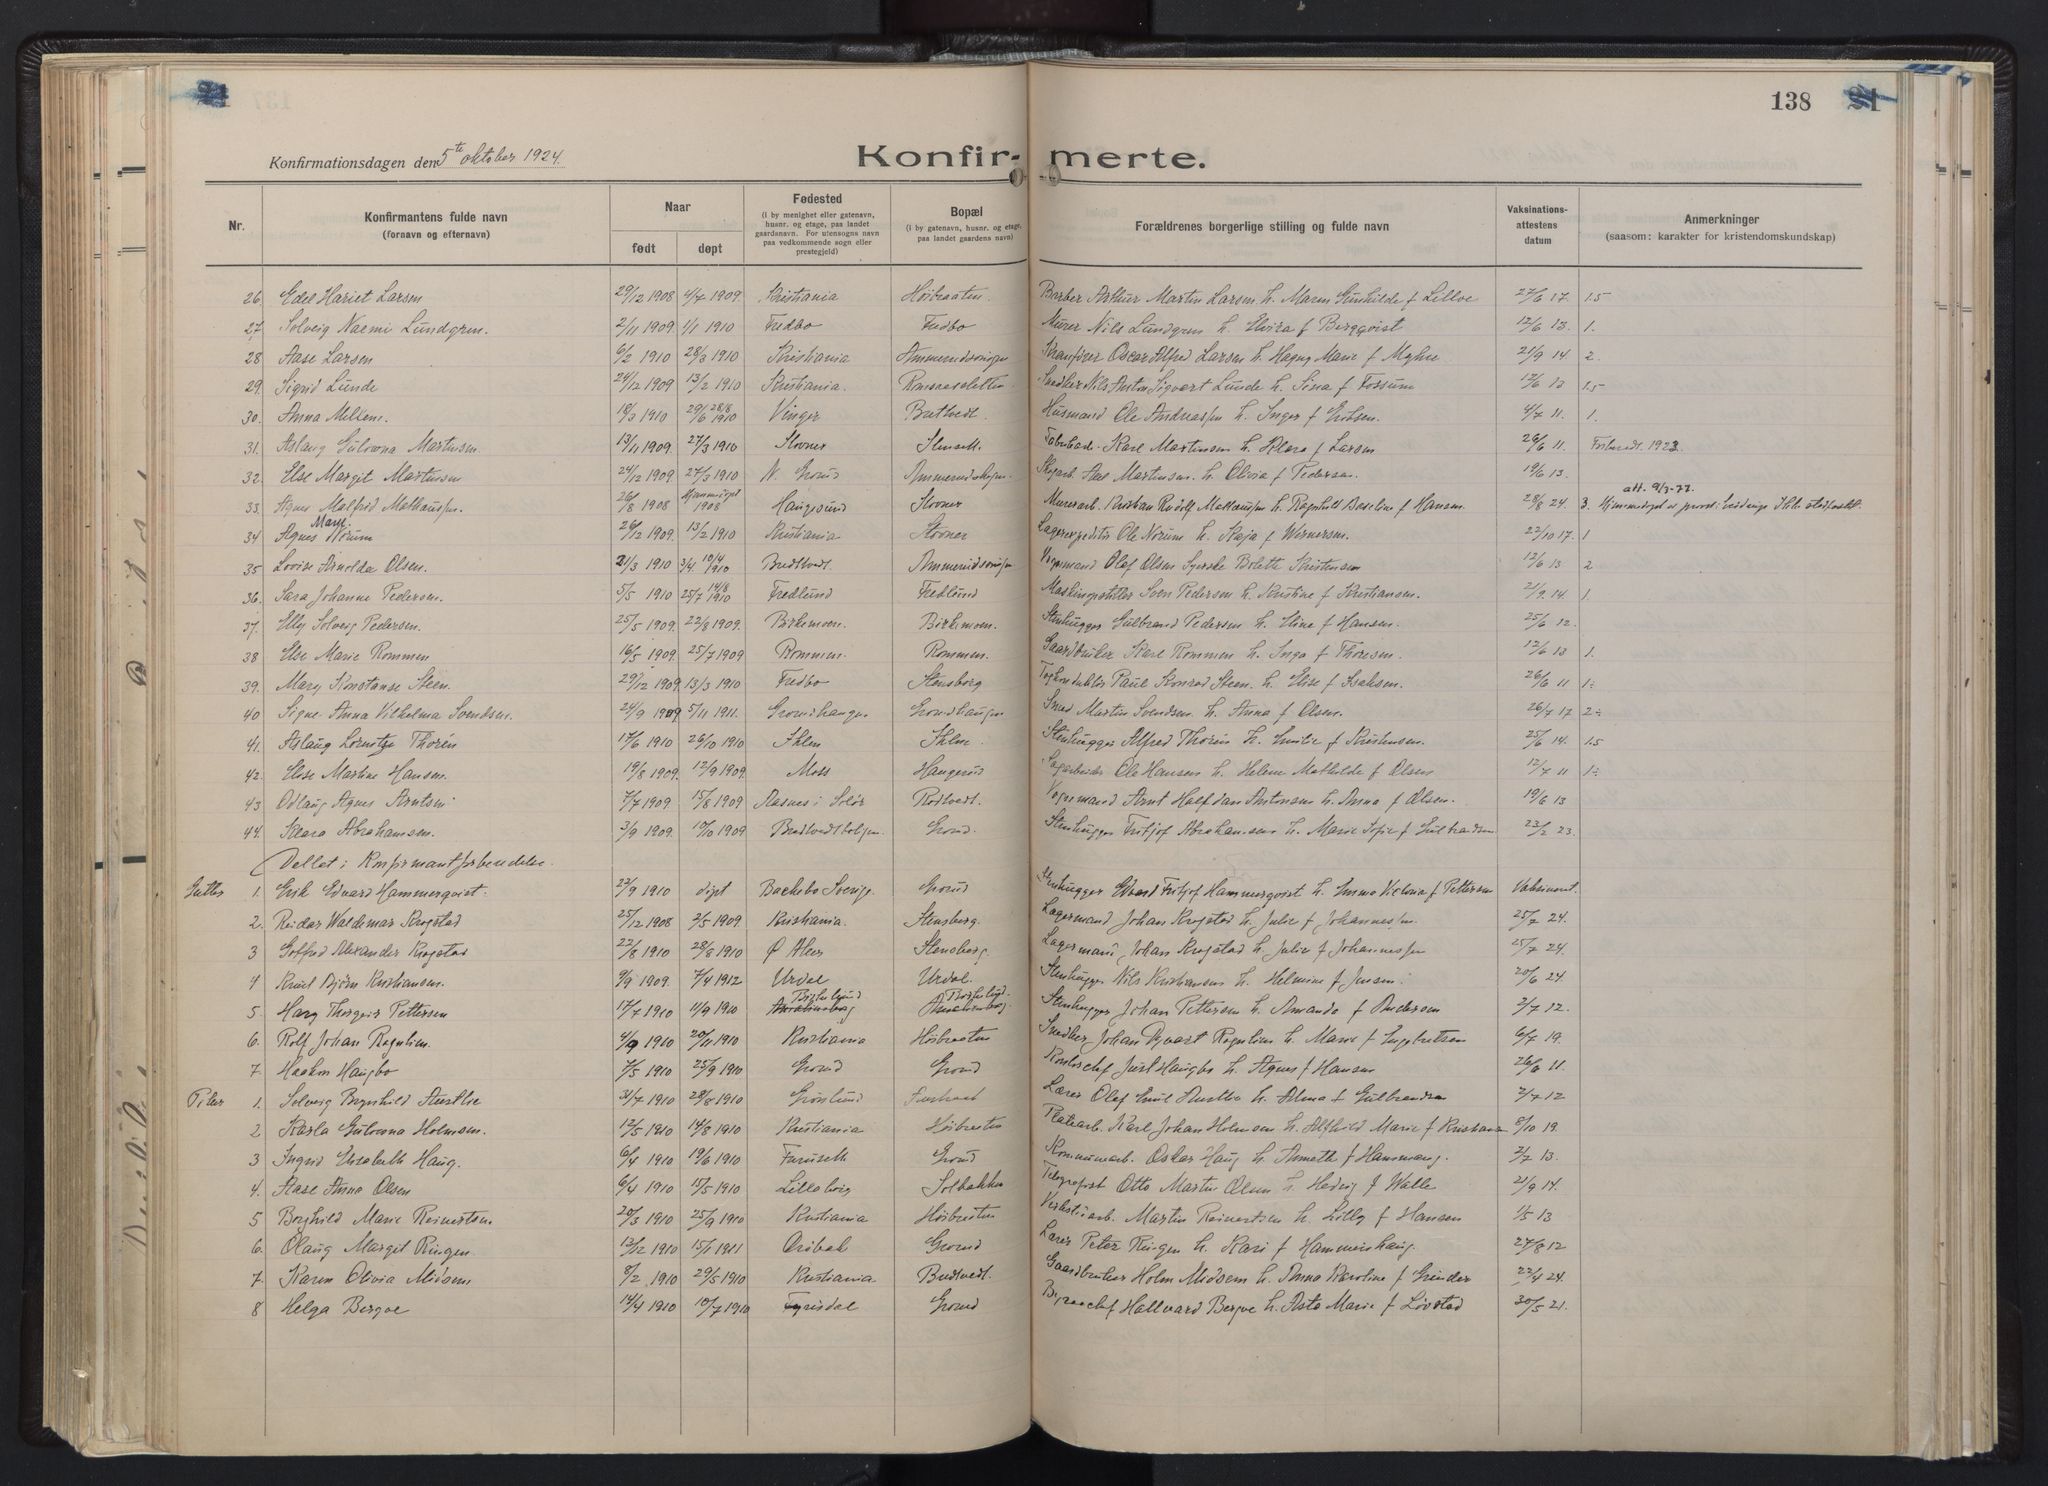 138
Konfirmationsdagen den 5te oktober 1924.
Konfir- merte.
Nr.
Konfirmantens fulde navn
(fornavn og efternavn)
Naar
født
døpt
Fødested
(i by menighet eller gatenavn,
husnr. og etage, paa landet
gaardsnavn. For utensogns navn
paa vedkommende sogn eller
prestegjeld)
Bopæl
(i by gatenavn, husnr. og etage,
paa landet gaardens navn)
Forældrenes borgerlige stilling og fulde navn
Vaksinations-
attestens
datum
Anmerkninger
(saasom: karakter for kristendomskundskap)
26. Edel Hariet Larsen 29/12 1908 4/7 1909. Kristiania Høibraaten. Barber Arthur Martin Larsen h. Maren Gunhilde f Lilloe 27/6 17. 1.5
27. Solveig Naemi Lundgren. 2/11 1909 1/1 1910 Fredbo Fredbo Murer Nils Lundgren h. Elvira f Bergqvist 12/6 13. 1.
28 Aase Larsen 6/2 1910 28/3 1910 Kristiania Oscar Alfred Larsen h. Marie f 21/9 14 2.
29. Sigrid Lunde 24/12 1909 13/2 1910 Kristiania. Snedker Nils Anton Sigvart Lunde h. Sina f Fossum 12/6 13 1.5
30. Anna Mellem. 18/3 1910 29/6 28/8 1910 Vinger Bredtvedt. Husmand Ole h. Inger f 4/7 11. 1.
31. Aslaug Gulovna Martinsen 13/11 1909. 27/3 1910 Stovner Karl Martinsen h. Klara f Larsen 26/6 11. 1923.
32. Else Margit Martinsen 24/12 1909 27/3 1910 N. Grorud Martinsen. h. Olivia f Pedersen. 19/6 13.
att. 9/3-77.
33. Agnes Malfrid 26/8 1908 Hjemmedøpt 1908 Haugesund Stovner Murerarb. Kristian Rudolf h. Ragnhild f Hansen. 28/8 24 3.
Mary
34 Agnes Norum 26/12 1909. 13/2 1910 Kristiania Stovner Lagerexpeditør Ole Norum h. Kaja f Wernersen. 22/10 17. 1
35 Lovise Arnolda Olsen. 21/3 1910 3/4. 10/4 1910 Bredtvedt Vognmand Olaf Olsen Bolette Kristensen 12/6 13 2
36. Sara Johanne Pedersen. 5/5 1910 25/7 14/8 1910 Fredlund Fredlund Sven Pedersen h. Kristine f Kristiansen. 21/9 14. 1.
37. Elly Solveig Pedersen. 25/5 1909. 22/8 1909. Birkemoen. Birkemoen. Stenhugger Gulbrand Pedersen h. Eline f Hansen. 25/6 12.
38 Else Marie Rommen 16/5 1909. 25/7 1909 Rommen. Rommen. Gaardbruker Karl Rommen h. Inga f Thoresen. 12/6 13 1.
39. Mary Konstanse Steen. 29/12 1909. 13/3 1910 Fredbo Stensborg Paul Konrad Steen. h. Elise f Isaksen. 26/6 11 1÷
40 Signe Anna Vilhelma Svendsen. 24/9 1909 5/11 1911. Smed Martin Svendsen. h. Anna f Olsen. 26/7 17 2÷
41. Aslaug Thorén 17/6 1910 26/10 1910 Stenhugger Alfred Thorén h. Emilie f 25/6 14. 1.5
42. Else Martine Hansen. 19/8 1909. 12/9 1909. Moss Haugerud Ole Hansen h. Helene Mathilde f Olsen 12/7 11 1÷
43 Odlaug Agnes Arntsen 7/7 1909. 15/8 1909 Aasnes i Solør Rødtvedt. Vognmand Arnt Halfdan Antonsen h. Anna f Olsen. 19/6 13
44. Klara Abrahamsen. 3/9 1909. 10/10 1909 Grorud. Stenhugger Fritjof Abrahamsen h. Marie Sofie f Gulbrandsen 23/2 23.
Deltat i Konfirmantforberedelse.
Gutter 1. Erik Edvard Hammerqvist. 22/9 1910 døpt Sverige. Grorud Stenhugger Edvard Fritjof Hammerqvist h. Emma Victoria f Pettersen Vaksinert.
2. Reidar Waldemar Krogstad 25/12 1908 2/5 1909. Kristiania. Stensberg. Lagermand Johan Krogstad h. Julie f Johannessen 25/7 24.
3 Gotfred Alexander Krogstad 22/8 1910 28/8 1910 Ø Aker Stensberg. Lagermand Johan Krogstad h. Julie f Johannessen 25/7 24.
4 Knut Bjørn Kristiansen. 9/9 1909. 7/4 1912 Urdal Urdal. Stenhugger Nils Kristiansen h. Helmine f Jensen. 20/6 24.
5. Harry Thorgeir Pettersen 17/7 1910 11/9 1910 Stenhugger Johan Pettersen h. Amanda f Andersen 2/7 12.
6. Rolf Johan 4/9 1910 20/11 1910 Kristiania Høibraaten Snedker Johan h. Marie f Ingebretsen 6/7 19.
7. Haakon Haugbo 7/5 1910 25/9 1910 Grorud Grorud Just Haugbo h. Agnes f Hansen 26/6 11.
Piker 1. Solveig Ragnhild Austlie 31/7 1910 28/8 1910 Lærer Olaf Emil Austlie h. Alma f Gulbrandsen 2/7 12
2 Karla Gulovna Holmsen. 12/5 1910 14/8 1910 Kristiania Høibraaten Karl Johan Holmsen h. Alfhild Marie f Kristiansen 8/10 19.
3 Ingrid Elisabeth Haug. 6/4 1910 19/6 1910 Furuseth Grorud Kommunearb. Oskar Haug h. Annette f 2/7 13.
4. Aase Anna Olsen 6/4 1910 15/5 1910 Solbakken Telegrafist Otto Martin Olsen h Hedvig f Walle 21/9 14.
5 Borghild Marie Reinertsen 20/3 1910 25/9 1910 Kristiania Høibraaten Verkstedarb. Martin Reinertsen h. Lilly f Hansen 1/5 13
6. Olaug Margit Ringen. 12/12 1910 15/1 1911 Drøbak Grorud Lærer Peter Ringen h. Kari f Hammershaug. 27/8 12
7. Karen Olivia Midsem 8/2 1910 29/5 1910 Kristiania Bredtvedt. Gaardbruker Holm Midsem h. Anna Karoline f Grinder 22/4 24.
8 Helga Bergve 14/4 1910 10/7 1910 Fyrisdal Grorud Hallvard Bergve h. Asta Marie f Løvstad 30/5 21.